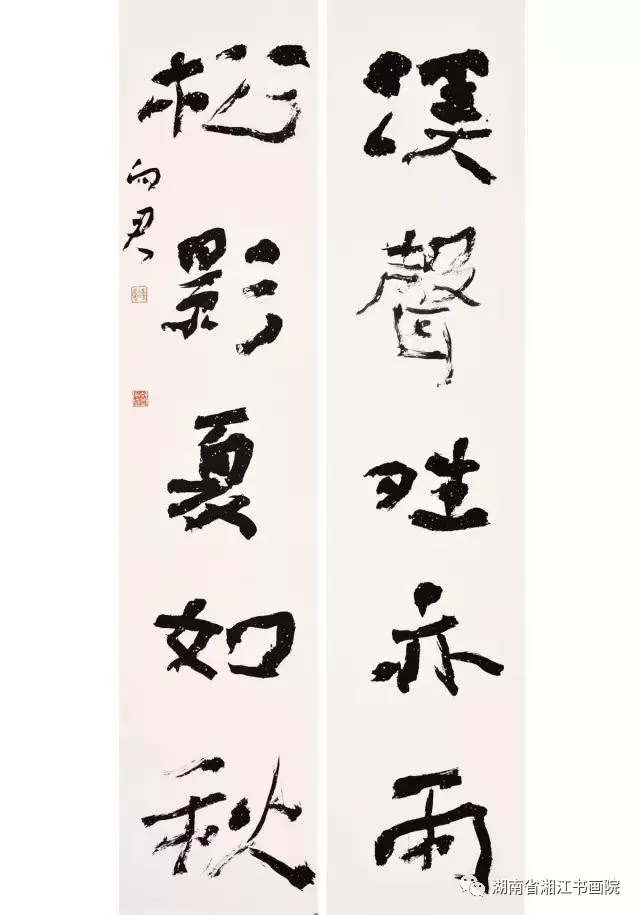 溪聲晴亦雨
松影夏如秋
向君
湖南省湘江书画院